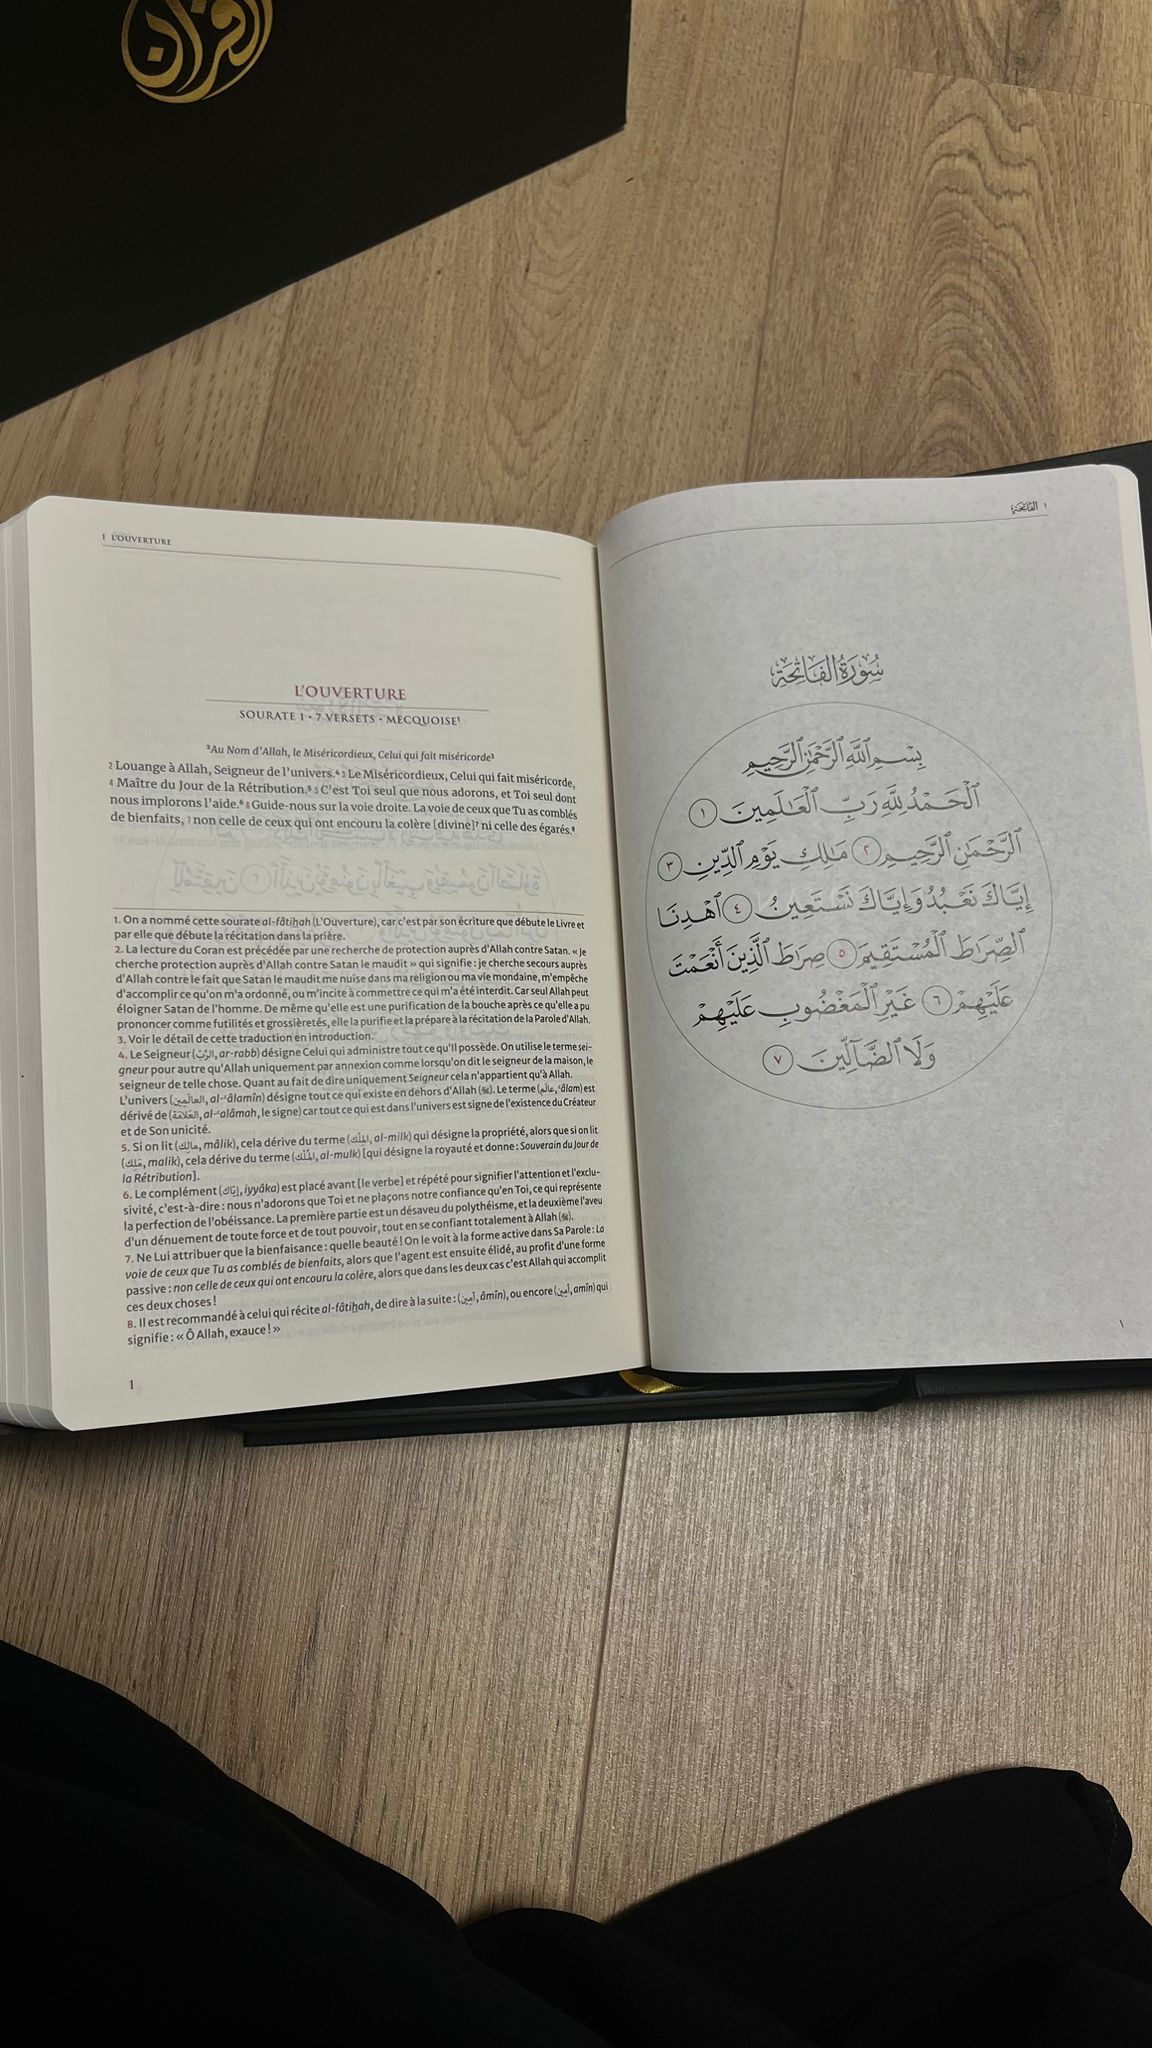 القرآن
1 L'OUVERTURE
L'OUVERTURE
SOURATE 1 • 7 VERSETS • MECQUOISE¹
²Au Nom d'Allah, le Miséricordieux, Celui qui fait miséricorde³
2 Louange à Allah, Seigneur de l'univers.⁴ 3 Le Miséricordieux, Celui qui fait miséricorde,
4 Maître du Jour de la Rétribution.⁵ 5 C'est Toi seul que nous adorons, et Toi seul dont
nous implorons l'aide.⁶ 6 Guide-nous sur la voie droite. La voie de ceux que Tu as comblés
de bienfaits, 7 non celle de ceux qui ont encouru la colère [divine]⁷ ni celle des égarés.⁸
1. On a nommé cette sourate al-fâtihah (L'Ouverture), car c'est par son écriture que débute le Livre et
par elle que débute la récitation dans la prière.
2. La lecture du Coran est précédée par une recherche de protection auprès d'Allah contre Satan. « Je
cherche protection auprès d'Allah contre Satan le maudit » qui signifie : je cherche secours auprès
d'Allah contre le fait que Satan le maudit me nuise dans ma religion ou ma vie mondaine, m'empêche
d'accomplir ce qu'on m'a ordonné, ou m'incite à commettre ce qui m'a été interdit. Car seul Allah peut
éloigner Satan de l'homme. De même qu'elle est une purification de la bouche après ce qu'elle a pu
prononcer comme futilités et grossièretés, elle la purifie et la prépare à la récitation de la Parole d'Allah.
3. Voir le détail de cette traduction en introduction.
4. Le Seigneur (الرَّبّ, ar-rabb) désigne Celui qui administre tout ce qu'Il possède. On utilise le terme sei-
gneur pour autre qu'Allah uniquement par annexion comme lorsqu'on dit le seigneur de la maison, le
seigneur de telle chose. Quant au fait de dire uniquement Seigneur cela n'appartient qu'à Allah.
L'univers (العالمين, al-ʿâlamîn) désigne tout ce qui existe en dehors d'Allah (ﷻ). Le terme (عالم, ʿâlam) est
dérivé de (العلامة, al-ʿalâmah, le signe) car tout ce qui est dans l'univers est signe de l'existence du Créateur
et de Son unicité.
5. Si on lit (مالِك, mâlik), cela dérive du terme (المِلْك, al-milk) qui désigne la propriété, alors que si on lit
(مَلِك, malik), cela dérive du terme (المُلْك, al-mulk) [qui désigne la royauté et donne : Souverain du Jour de
la Rétribution].
6. Le complément (إيّاك, iyyâka) est placé avant [le verbe] et répété pour signifier l'attention et l'exclu-
sivité, c'est-à-dire : nous n'adorons que Toi et ne plaçons notre confiance qu'en Toi, ce qui représente
la perfection de l'obéissance. La première partie est un désaveu du polythéisme, et la deuxième l'aveu
d'un dénuement de toute force et de tout pouvoir, tout en se confiant totalement à Allah (ﷻ).
7. Ne Lui attribuer que la bienfaisance : quelle beauté ! On le voit à la forme active dans Sa Parole : La
voie de ceux que Tu as comblés de bienfaits, alors que l'agent est ensuite élidé, au profit d'une forme
passive : non celle de ceux qui ont encouru la colère, alors que dans les deux cas c'est Allah qui accomplit
ces deux choses !
8. Il est recommandé à celui qui récite al-fâtihah, de dire à la suite : (آمين, âmîn), ou encore (أمين, amîn) qui
signifie : « Ô Allah, exauce ! »
1
١ الفاتحة
سُورَةُ الفَاتِحَةِ
بِسْمِ اللَّهِ الرَّحْمَٰنِ الرَّحِيمِ
ٱلْحَمْدُ لِلَّهِ رَبِّ ٱلْعَٰلَمِينَ ١
ٱلرَّحْمَٰنِ ٱلرَّحِيمِ ٢ مَلِكِ يَوْمِ ٱلدِّينِ ٣
إِيَّاكَ نَعْبُدُ وَإِيَّاكَ نَسْتَعِينُ ٤ ٱهْدِنَا
ٱلصِّرَٰطَ ٱلْمُسْتَقِيمَ ٥ صِرَٰطَ ٱلَّذِينَ أَنْعَمْتَ
عَلَيْهِمْ ٦ غَيْرِ ٱلْمَغْضُوبِ عَلَيْهِمْ
وَلَا ٱلضَّآلِّينَ ٧
١